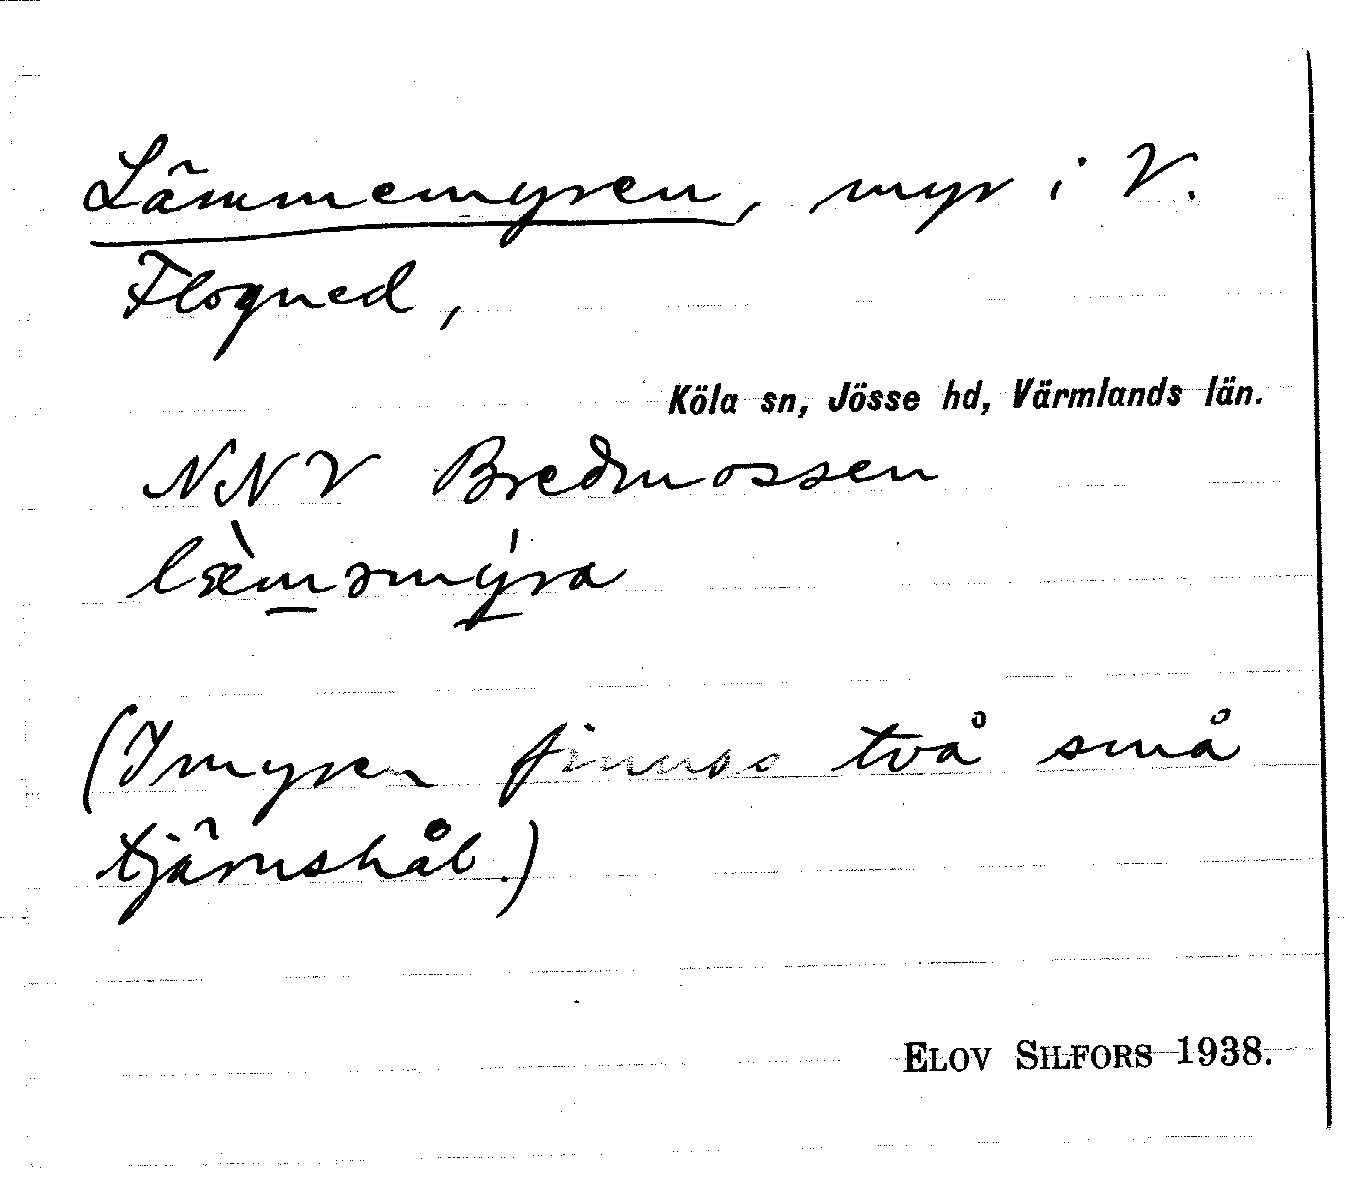 Lämmemyren, myr i V.
Flogned,
Köla sn, Jösse hd, Värmlands län.
NNV Bredmossen
læ̀m̲əmý̲ra
(I myren finnes två små
tjärnshål.)
ELOV SILFORS 1938.